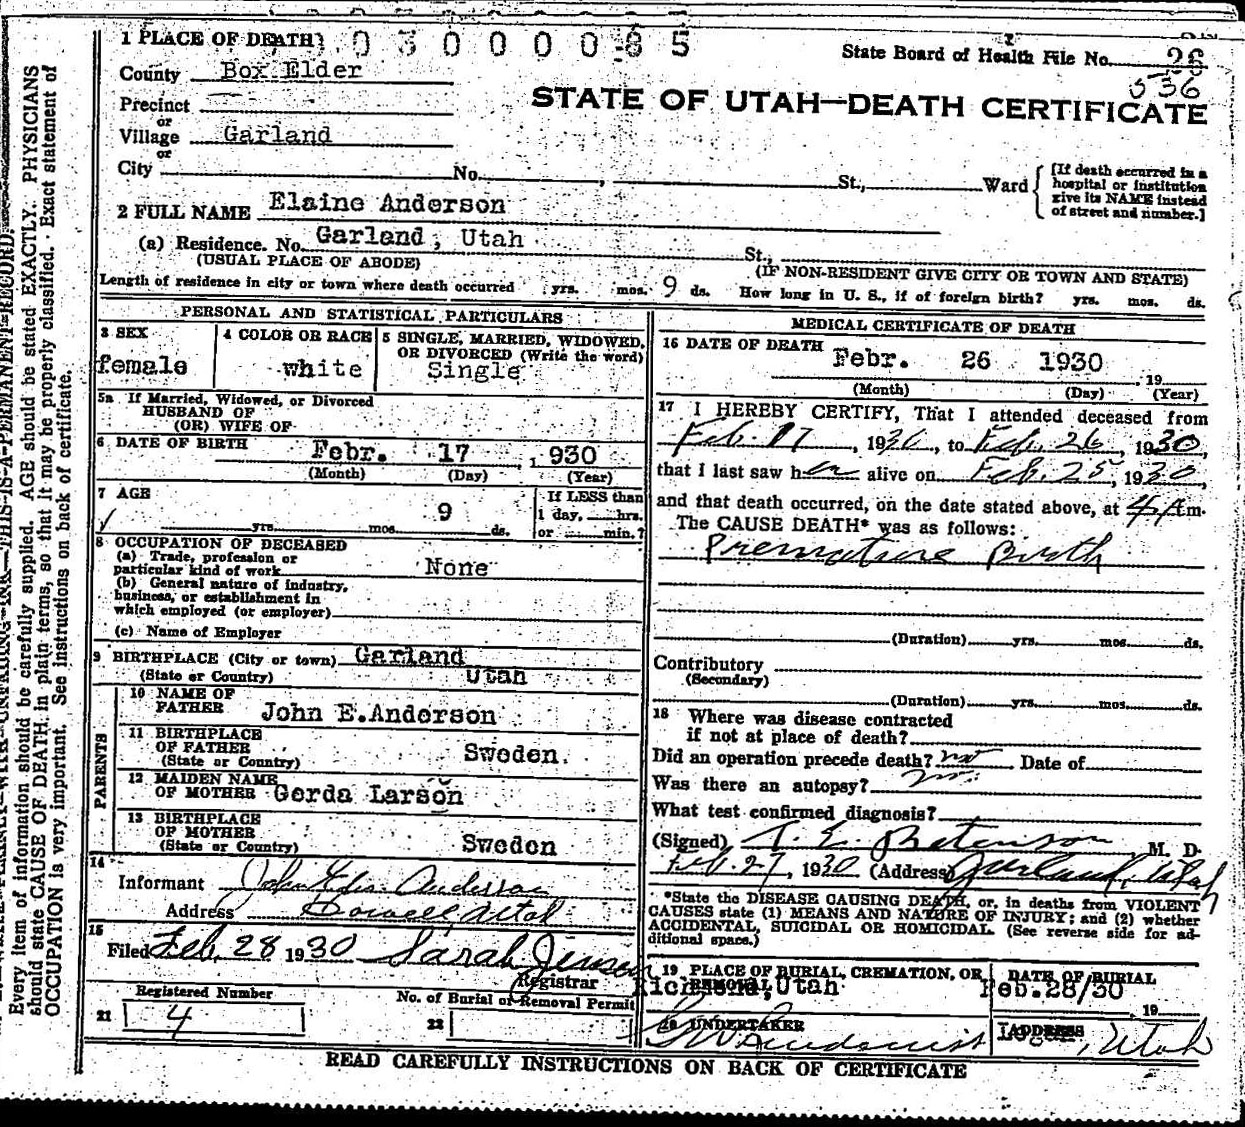 1 PLACE OF DEATH
State Board of Health File No. 26
536
County Box Elder
STATE OF UTAH—DEATH CERTIFICATE
Precinct
or
Village Garland
or
City No. , St., Ward
[If death occurred in a
hospital or institution
give its NAME instead
of street and number.]
2 FULL NAME Elaine Anderson
(a) Residence. No. Garland, Utah St.,
(USUAL PLACE OF ABODE) (IF NON-RESIDENT GIVE CITY OR TOWN AND STATE)
Length of residence in city or town where death occurred yrs. mos. 9 ds. How long in U. S., if of foreign birth? yrs. mos. ds.
PERSONAL AND STATISTICAL PARTICULARS
3 SEX
female
4 COLOR OR RACE
white
5 SINGLE, MARRIED, WIDOWED,
OR DIVORCED (Write the word)
Single
5a If Married, Widowed, or Divorced
HUSBAND OF
(OR) WIFE OF
6 DATE OF BIRTH Febr. 17, 1930
(Month) (Day) (Year)
7 AGE
yrs. mos. 9 ds.
If LESS than
1 day, hrs.
or min.?
8 OCCUPATION OF DECEASED
(a) Trade, profession or
particular kind of work None
(b) General nature of industry,
business, or establishment in
which employed (or employer)
(c) Name of Employer
9 BIRTHPLACE (City or town) Garland
(State or Country) Utah
PARENTS
10 NAME OF
FATHER John E.Anderson
11 BIRTHPLACE
OF FATHER
(State or Country) Sweden.
12 MAIDEN NAME
OF MOTHER Gerda Larson
13 BIRTHPLACE
OF MOTHER
(State or Country) Sweden
14
Informant John Anderson
Address Howell Utah
15
Filed Feb. 28 1930 Sarah Jensen
Registrar
Registered Number
21 4
No. of Burial or Removal Permit
22
MEDICAL CERTIFICATE OF DEATH
16 DATE OF DEATH Febr. 26 1930
, 19
(Month) (Day) (Year)
17 I HEREBY CERTIFY, That I attended deceased from
Feb. 17, 1930, to Feb. 26, 1930,
that I last saw her alive on Feb. 25, 1930,
and that death occurred, on the date stated above, at 4 A m.
The CAUSE DEATH* was as follows:
Premature Birth
(Duration) yrs. mos. ds.
Contributory
(Secondary)
(Duration) yrs. mos. ds.
18 Where was disease contracted
if not at place of death?
Did an operation precede death? no Date of
Was there an autopsy? no
What test confirmed diagnosis?
(Signed) T. E. Betenson M. D.
Feb. 27, 1930 (Address) Garland, Utah
*State the DISEASE CAUSING DEATH, or, in deaths from VIOLENT
CAUSES state (1) MEANS AND NATURE OF INJURY; and (2) whether
ACCIDENTAL, SUICIDAL OR HOMICIDAL. (See reverse side for ad-
ditional space.)
19 PLACE OF BURIAL, CREMATION, OR
REMOVAL
Richmond, Utah
DATE OF BURIAL
Feb.28/30
, 19
20 UNDERTAKER
ADDRESS
Logan, Utah
READ CAREFULLY INSTRUCTIONS ON BACK OF CERTIFICATE
Every item of information should be carefully supplied. AGE should be stated EXACTLY. PHYSICIANS
should state CAUSE OF DEATH in plain terms, so that it may be properly classified. Exact statement of
OCCUPATION is very important. See instructions on back of certificate.